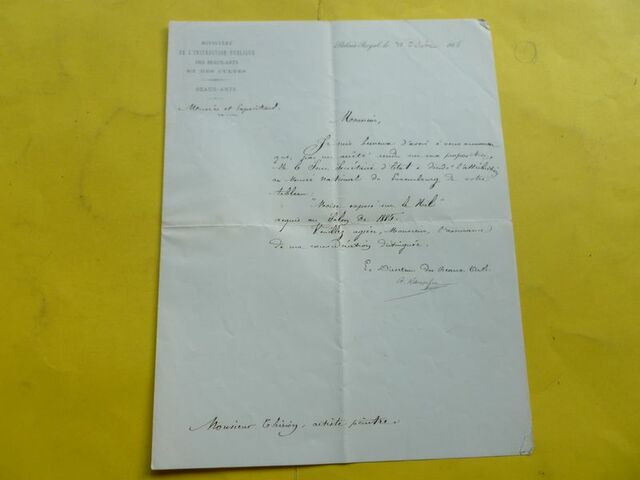 MINISTÈRE
DE L'INSTRUCTION PUBLIQUE
DES BEAUX-ARTS
ET DES CULTES
BEAUX-ARTS
Musées et Expositions
Palais-Royal, le
Monsieur,
Je suis heureux d'avoir à vous annoncer
que, par un arrêté rendu sur ma proposition,
M. le Sous Secrétaire d'Etat a décidé l'attribution
au Musée national du Luxembourg de votre
tableau:
"Moïse exposé sur le Nil"
acquis au Salon de 1885.
Veuillez agréer, Monsieur, l'assurance
de ma considération distinguée.
Le Directeur des Beaux Arts.
Monsieur Thirion, artiste peintre.